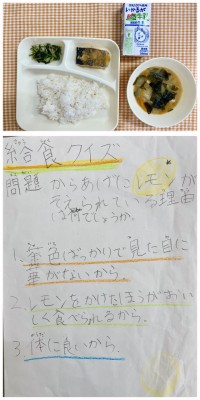 給食クイズ
問題 からあげにレモンが
そえられている理由
は何でしょうか。
1. 茶色ばっかりで見た目に
華がないから。
2. レモンをかけたほうがおい
しく食べられるから。
3. 体に良いから。